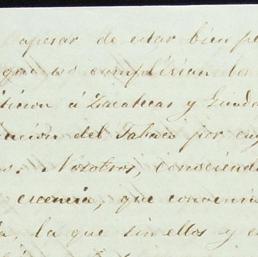 apesar de estar bien pe
que se cumplirian los
ition á Zacatecas y Guada
incion del Tabaco por cuy
Nosotros, conociendo
escencia, que convenia
la que sin ellos y e